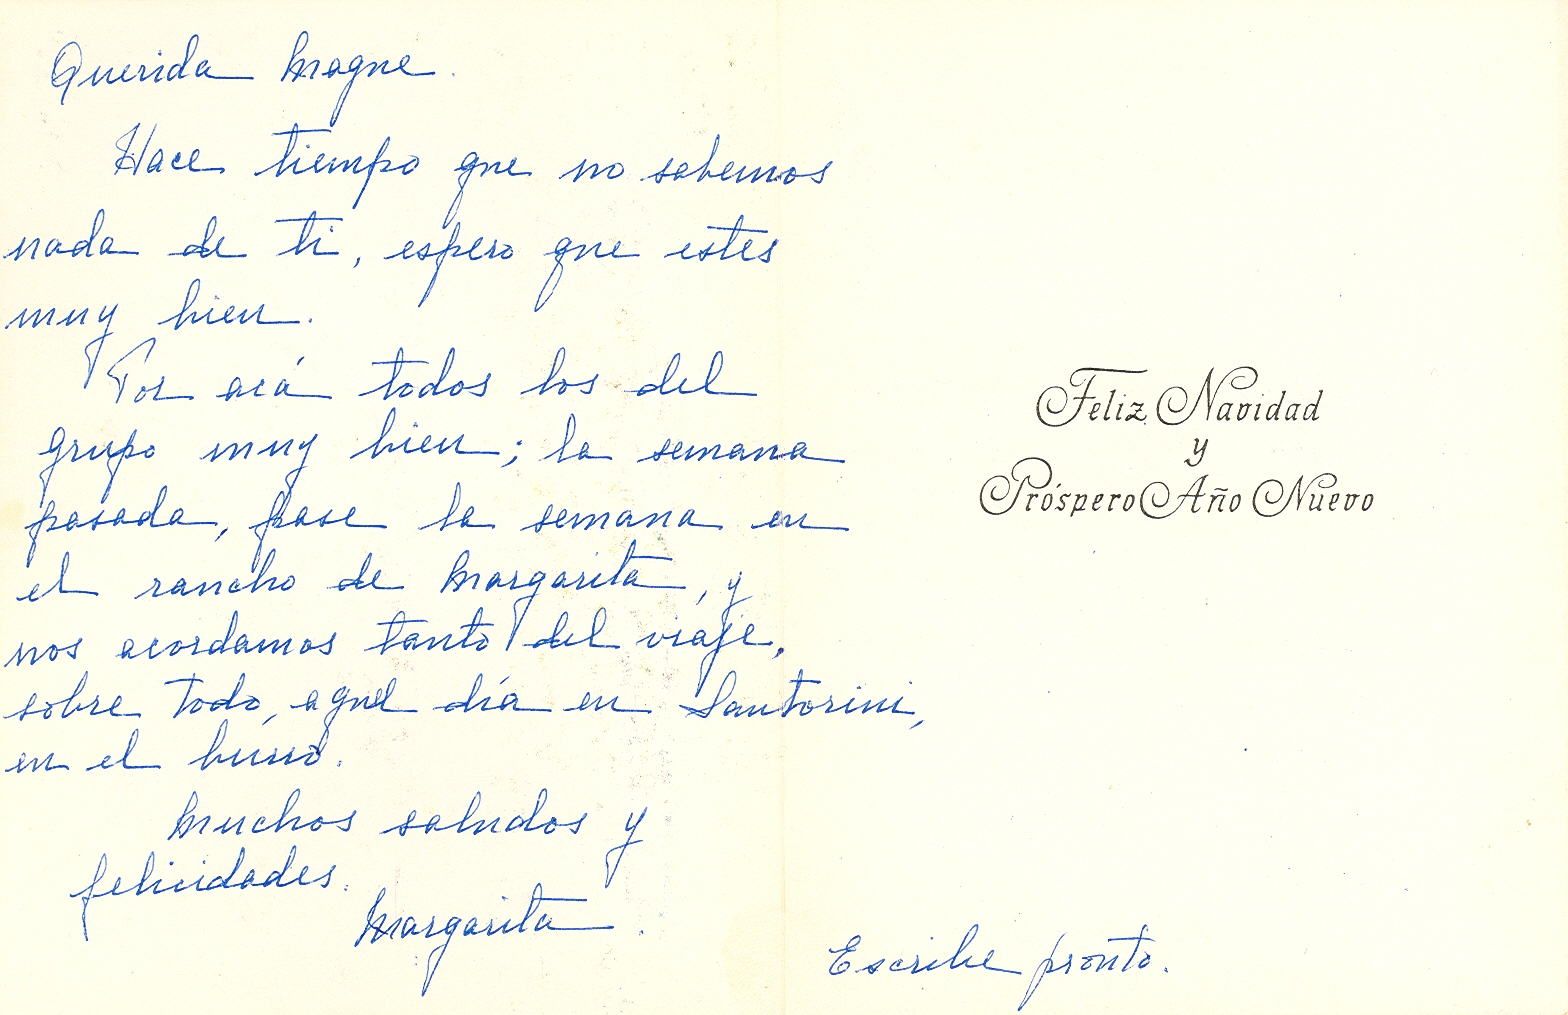 Querida Magne.
Hace tiempo que no sabemos
nada de ti, espero que estes
muy bien.
Por acá todos los del
grupo muy bien; la semana
pasada, pase la semana en
el rancho de Margarita, y
nos acordamos tanto del viaje,
sobre todo, aquel día en Santorini,
en el burro.
Muchos saludos y
felicidades.
Margarita.
Feliz Navidad
y
Próspero Año Nuevo
Escribe pronto.